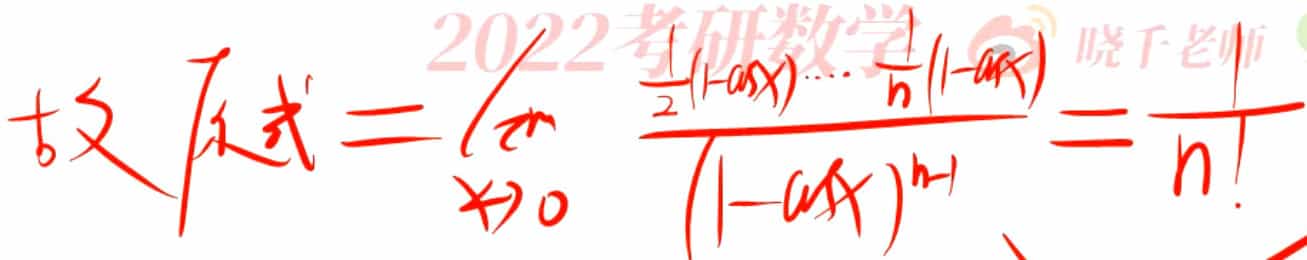 2022考研数学 晓千老师
故原式 = lim x→0 \frac{\frac{1}{2}(1-cosx)····\frac{1}{n}(1-cosx)}{(1-cosx)^{n-1}} = \frac{1}{n!}